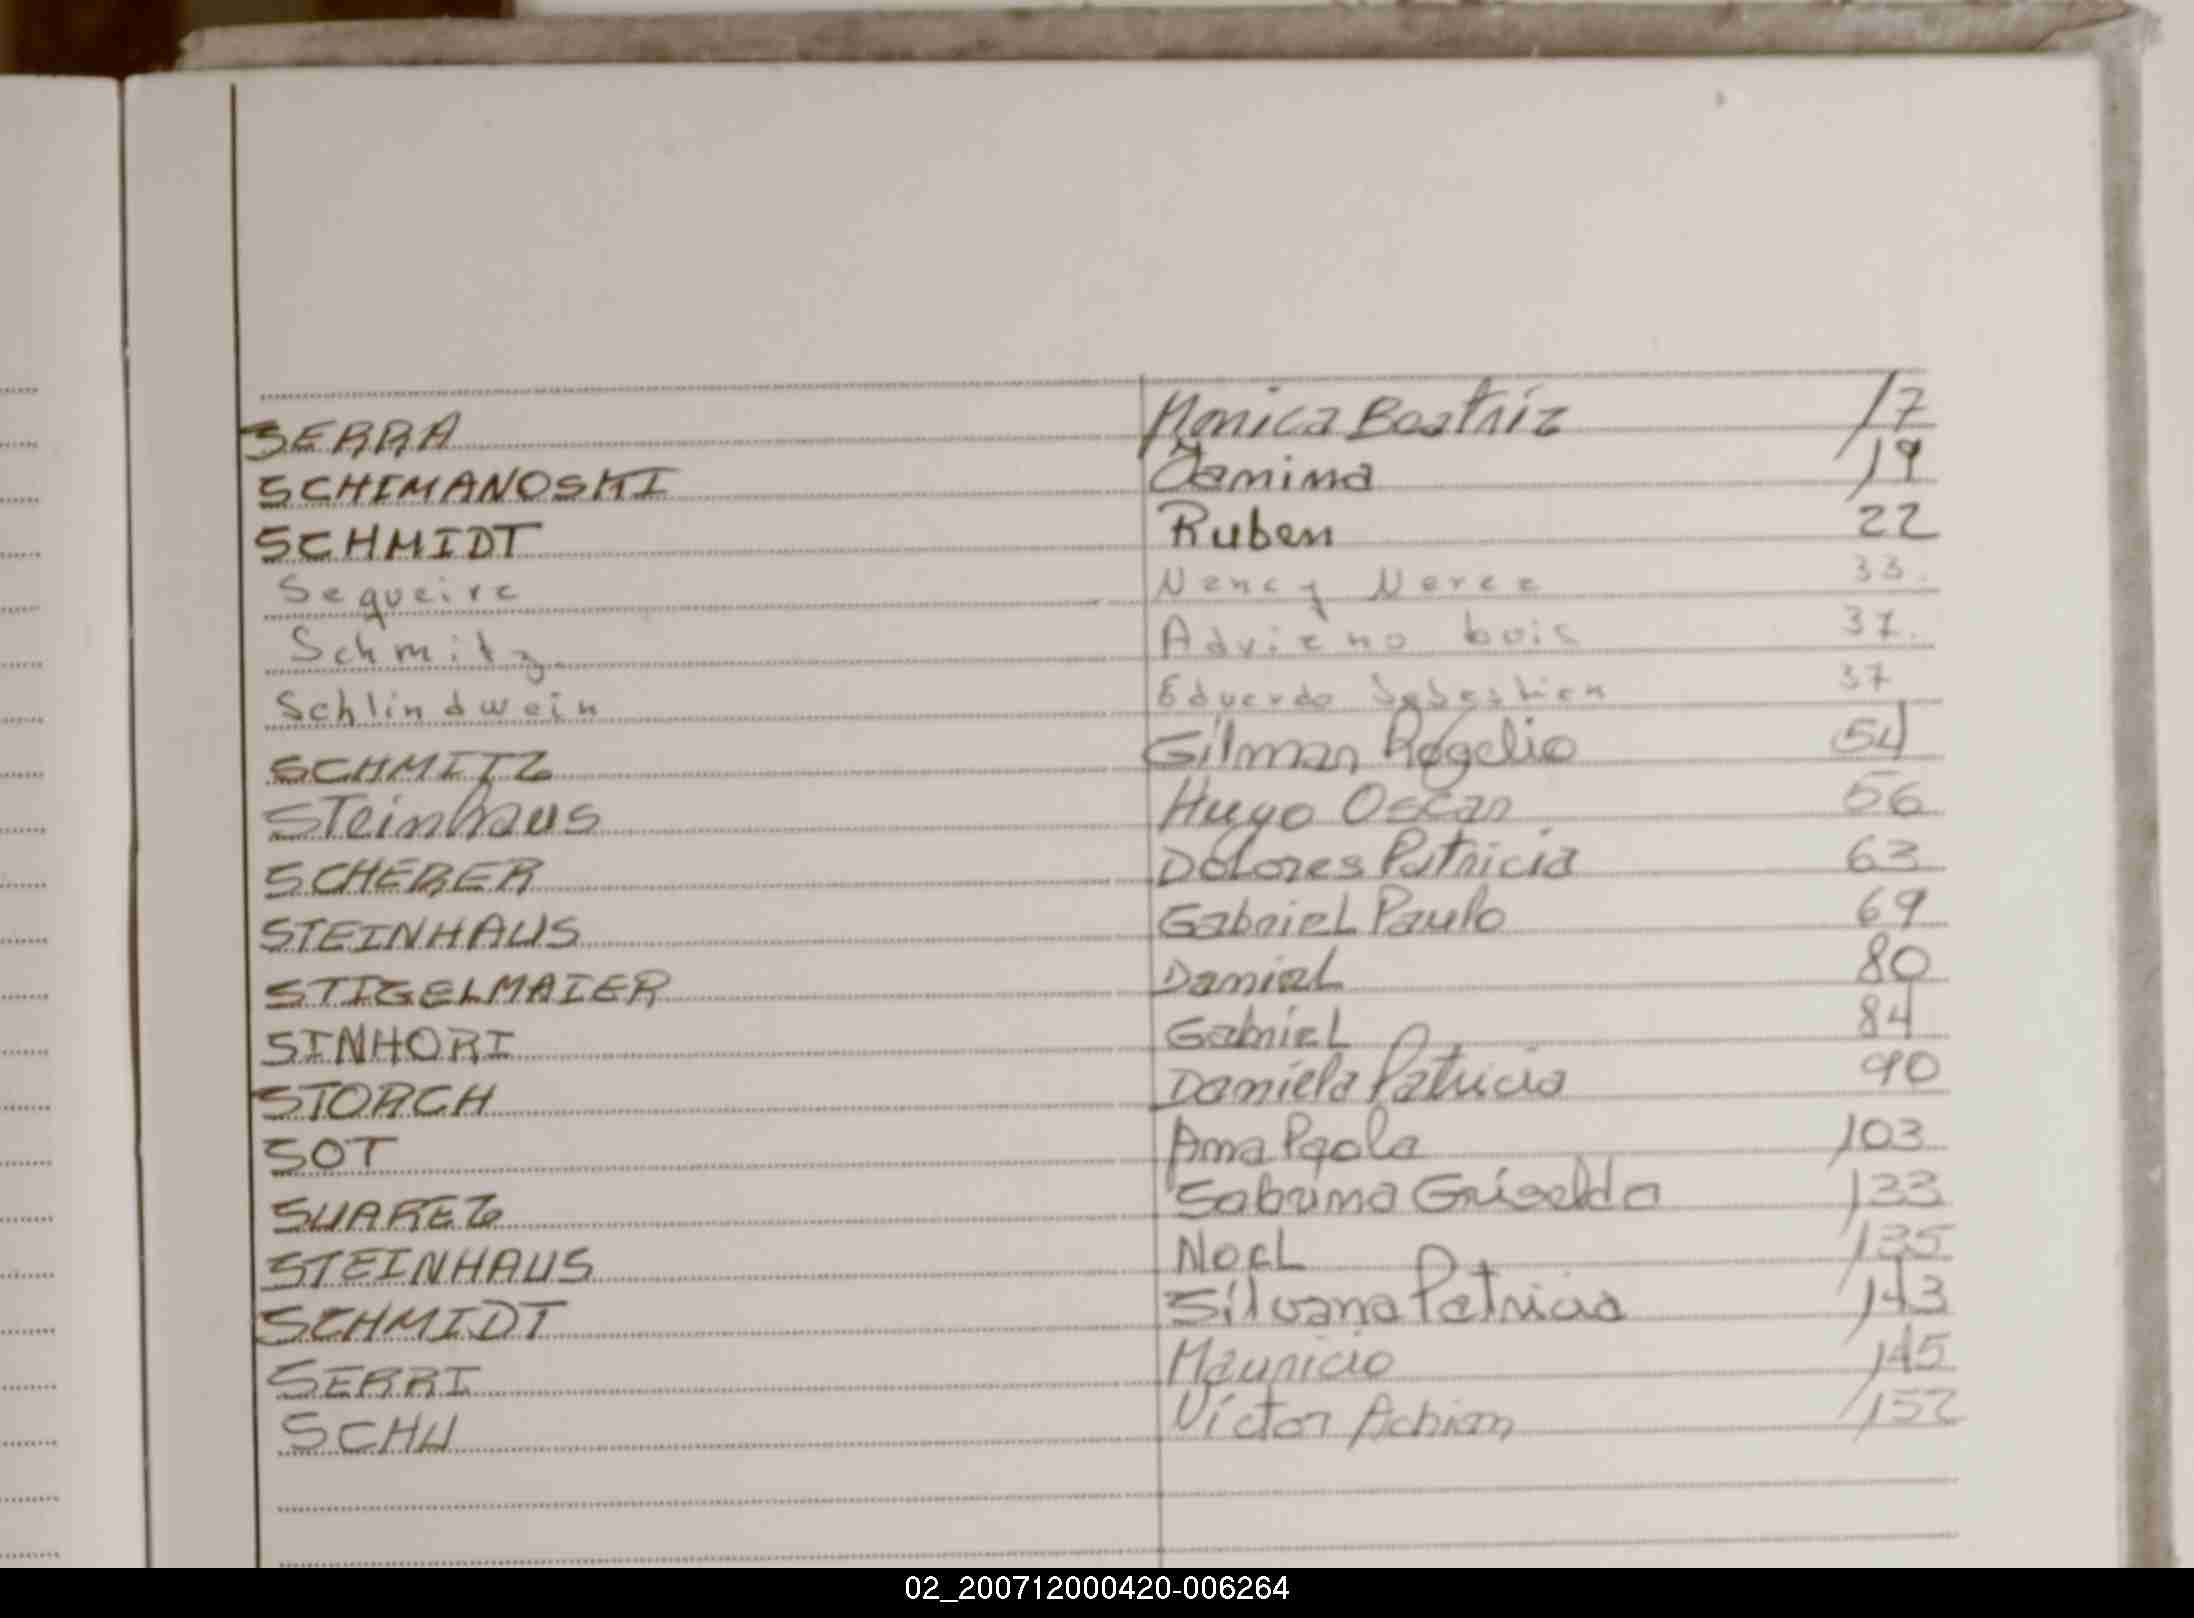 SERRA Monica Beatriz 17
SCHIMANOSKI Jamima 19
SCHMIDT Ruben 22
Sequeira Nancy Nerea 33
Schmitz Adriano Luis 37
Schlindwein Eduardo Sebastian 37
SCHMITZ Gilman Rogelio 54
STeinhaus Hugo Oscar 56
SCHERER Dolores Patricia 63
STEINHAUS Gabriel Paulo 69
STIGELMAIER Daniel 80
SINHORI Gabriel 84
STORCH Daniela Patricia 90
SOT Ana Paola 103
SUAREZ Sabrina Griselda 133
STEINHAUS Noel 135
SCHMIDT Silvana Patricia 143
SERRI Mauricio 145
SCHU Victor 152
02_200712000420-006264